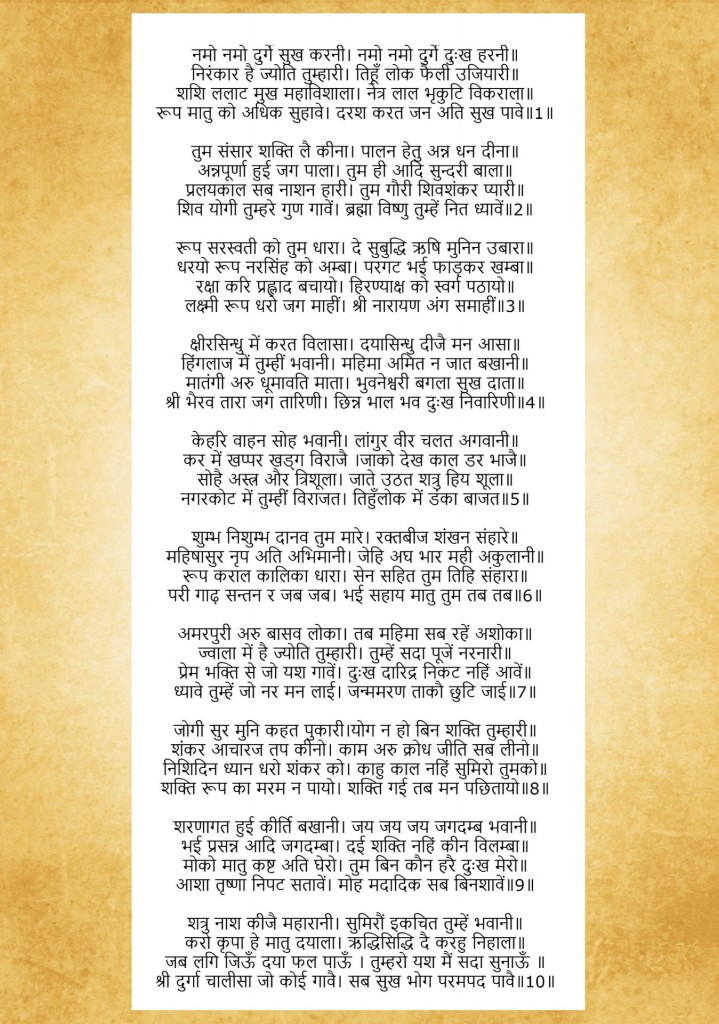 नमो नमो दुर्गे सुख करनी। नमो नमो दुर्गे दुःख हरनी॥
निरंकार है ज्योति तुम्हारी। तिहूँ लोक फैली उजियारी॥
शशि ललाट मुख महाविशाला। नेत्र लाल भृकुटि विकराला॥
रूप मातु को अधिक सुहावे। दरश करत जन अति सुख पावे॥1॥
तुम संसार शक्ति लै कीना। पालन हेतु अन्न धन दीना॥
अन्नपूर्णा हुई जग पाला। तुम ही आदि सुन्दरी बाला॥
प्रलयकाल सब नाशन हारी। तुम गौरी शिवशंकर प्यारी॥
शिव योगी तुम्हरे गुण गावें। ब्रह्मा विष्णु तुम्हें नित ध्यावें॥2॥
रूप सरस्वती को तुम धारा। दे सुबुद्धि ऋषि मुनिन उबारा॥
धरयो रूप नरसिंह को अम्बा। परगट भई फाड़कर खम्बा॥
रक्षा करि प्रह्लाद बचायो। हिरण्याक्ष को स्वर्ग पठायो॥
लक्ष्मी रूप धरो जग माहीं। श्री नारायण अंग समाहीं॥3॥
क्षीरसिन्धु में करत विलासा। दयासिन्धु दीजै मन आसा॥
हिंगलाज में तुम्हीं भवानी। महिमा अमित न जात बखानी॥
मातंगी अरु धूमावति माता। भुवनेश्वरी बगला सुख दाता॥
श्री भैरव तारा जग तारिणी। छिन्न भाल भव दुःख निवारिणी॥4॥
केहरि वाहन सोह भवानी। लांगुर वीर चलत अगवानी॥
कर में खप्पर खड्ग विराजै ।जाको देख काल डर भाजै॥
सोहै अस्त्र और त्रिशूला। जाते उठत शत्रु हिय शूला॥
नगरकोट में तुम्हीं विराजत। तिहुँलोक में डंका बाजत॥5॥
शुम्भ निशुम्भ दानव तुम मारे। रक्तबीज शंखन संहारे॥
महिषासुर नृप अति अभिमानी। जेहि अघ भार मही अकुलानी॥
रूप कराल कालिका धारा। सेन सहित तुम तिहि संहारा॥
परी गाढ़ सन्तन र जब जब। भई सहाय मातु तुम तब तब॥6॥
अमरपुरी अरु बासव लोका। तब महिमा सब रहें अशोका॥
ज्वाला में है ज्योति तुम्हारी। तुम्हें सदा पूजें नरनारी॥
प्रेम भक्ति से जो यश गावें। दुःख दारिद्र निकट नहिं आवें॥
ध्यावे तुम्हें जो नर मन लाई। जन्ममरण ताकौ छुटि जाई॥7॥
जोगी सुर मुनि कहत पुकारी।योग न हो बिन शक्ति तुम्हारी॥
शंकर आचारज तप कीनो। काम अरु क्रोध जीति सब लीनो॥
निशिदिन ध्यान धरो शंकर को। काहु काल नहिं सुमिरो तुमको॥
शक्ति रूप का मरम न पायो। शक्ति गई तब मन पछितायो॥8॥
शरणागत हुई कीर्ति बखानी। जय जय जय जगदम्ब भवानी॥
भई प्रसन्न आदि जगदम्बा। दई शक्ति नहिं कीन विलम्बा॥
मोको मातु कष्ट अति घेरो। तुम बिन कौन हरै दुःख मेरो॥
आशा तृष्णा निपट सतावें। मोह मदादिक सब बिनशावें॥9॥
शत्रु नाश कीजै महारानी। सुमिरौं इकचित तुम्हें भवानी॥
करो कृपा हे मातु दयाला। ऋद्धिसिद्धि दै करहु निहाला॥
जब लगि जिऊँ दया फल पाऊँ । तुम्हरो यश मैं सदा सुनाऊँ ॥
श्री दुर्गा चालीसा जो कोई गावै। सब सुख भोग परमपद पावै॥10॥